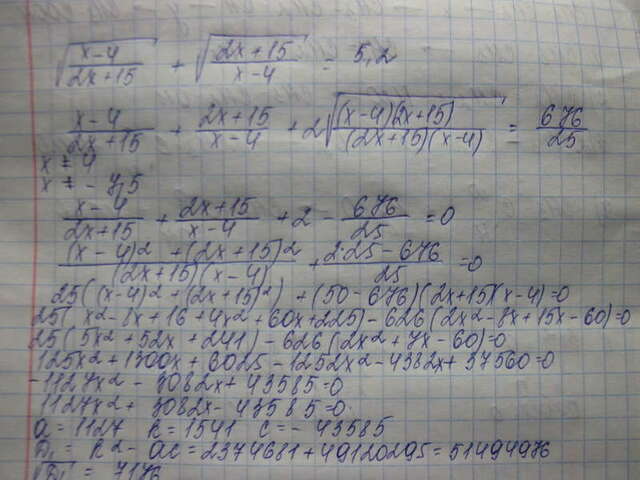 √((x-4)/(2x+15)) + √((2x+15)/(x-4)) = 5,2
(x-4)/(2x+15) + (2x+15)/(x-4) + 2√((x-4)(2x+15)/(2x+15)(x-4)) = 676/25
x ≠ 4
x ≠ -7,5
(x-4)/(2x+15) + (2x+15)/(x-4) + 2 - 676/25 = 0
((x-4)² + (2x+15)²)/((2x+15)(x-4)) + (2·25-676)/25 = 0
25((x-4)² + (2x+15)²) + (50-676)(2x+15)(x-4)=0
25(x²-8x+16+4x²+60x+225)-626(2x²-8x+15x-60)=0
25(5x²+52x+241)-626(2x²+7x-60)=0
125x²+1300x+6025-1252x²-4382x+37560=0
-1127x²-3082x+43585=0
1127x²+3082x-43585=0
a=1127 k=1541 c=-43585
D₁=k²-ac=2374681+49120295=51494976
√D₁ = 7176